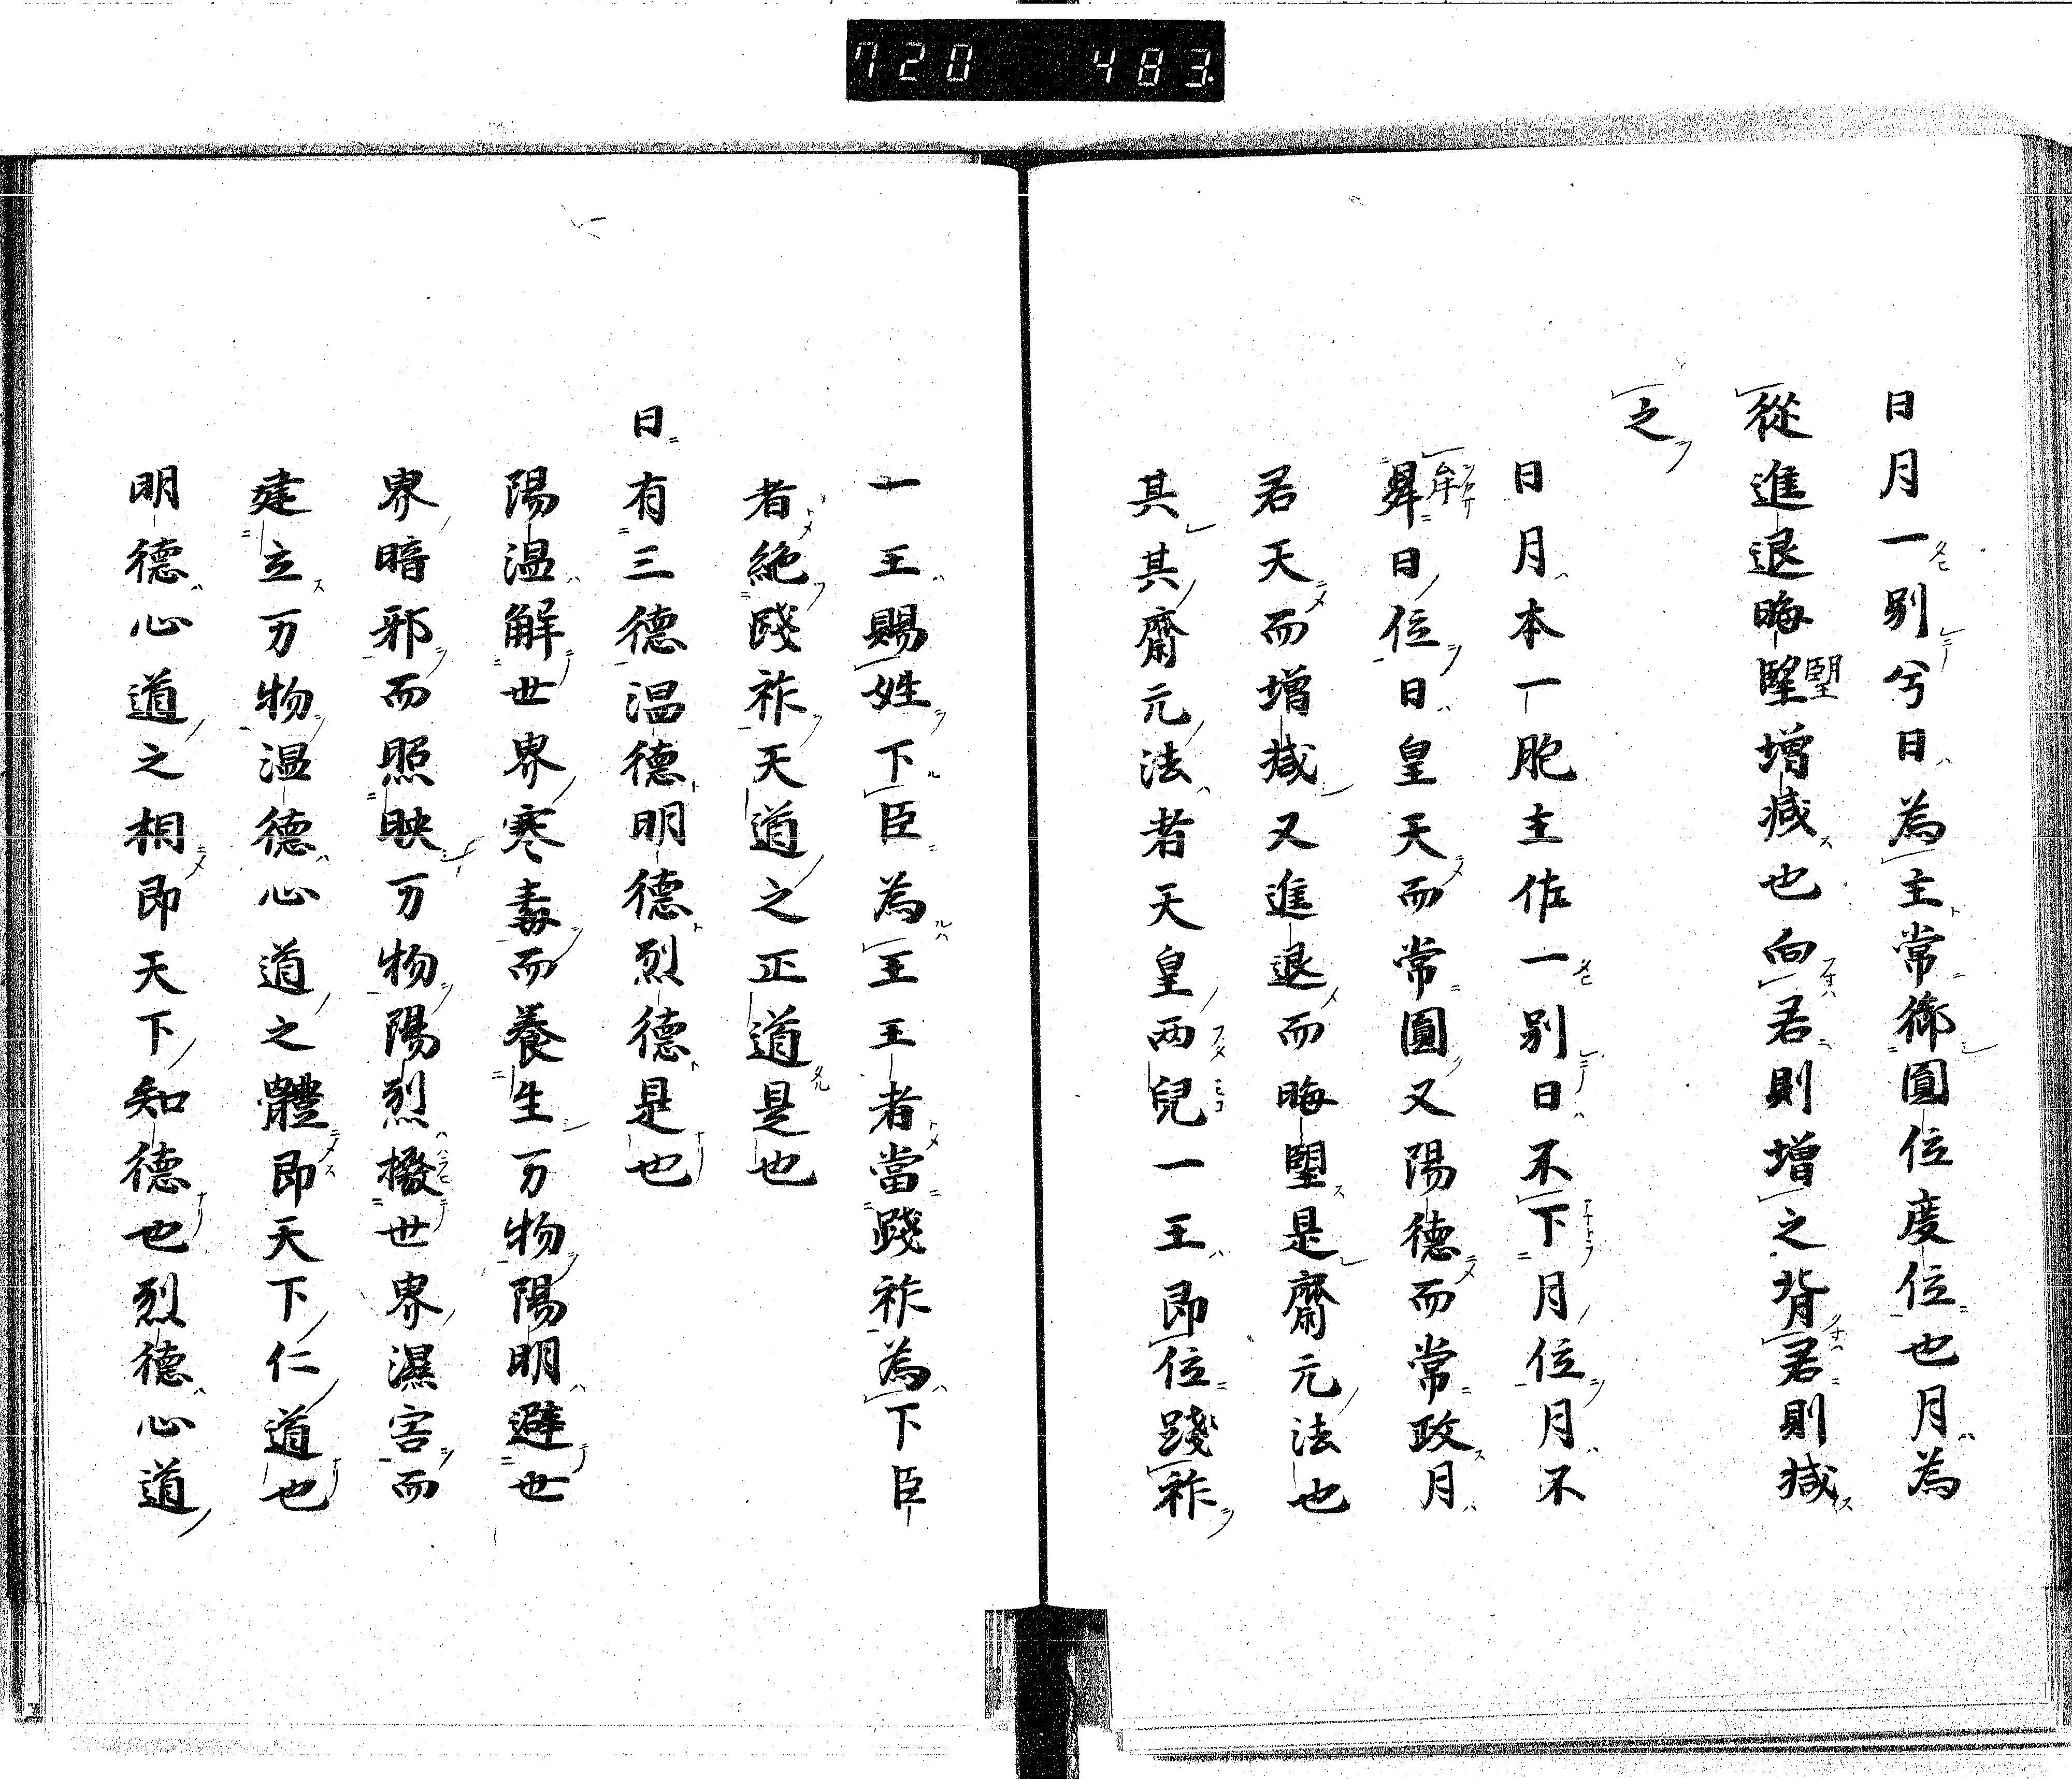 720 483
日月一別兮日為主常御圓位度位也月為
從進退晦朢增減也向君則增之背君則減
之
日月本一胞主佐一別日不下月位月不
日位日皇天而常圓又陽德而常政月
君天而增減又進退而晦朢是齋元法也
其其齋元法者天皇两兒一王即位踐祚
一王賜姓下臣為王王者當踐祚為下臣
者絶踐祚天道之正道是也
日有三德温德明德烈德是也
陽温解世界寒毒而養生万物陽明避世
界暗邪而照映万物陽烈撥世界濕害而
建立万物温德心道之體即天下仁道也
明德心道之相即天下知德也烈德心道